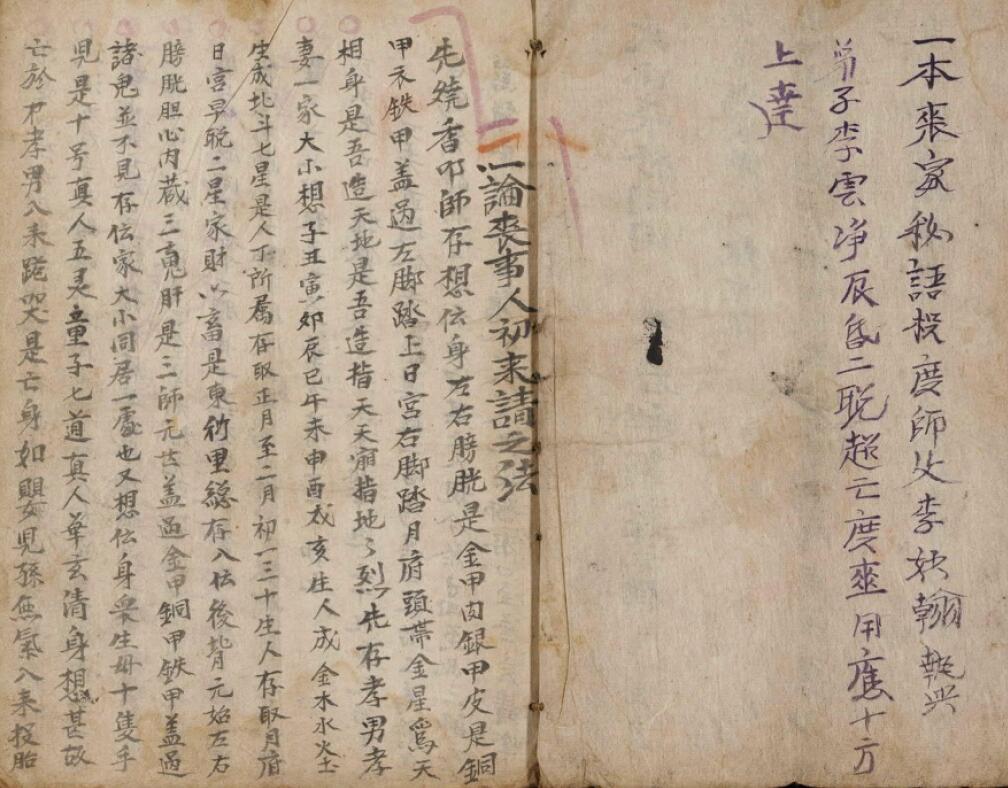 一本喪家秘語投度師父李妙翰執照
弟子李雲净辰昏二晚超亡度灵用應十方
上達
一論喪事人初来請之法
先燒香叩師存想伝身左右膀胱是金甲肉銀甲皮是銅
甲衣铁甲盖過左脚踏上日宮右脚踏月府頭带金星為天
相身是吾造天地是吾造指天天崩指地〻烈先存孝男孝
妻一家大小想子丑寅夘辰巳午未申酉戌亥生人成金木水火土
生成北斗七星是人丁所属存取正月至二月初一三十生人存取月府
日宮早晚二星家財六畜是東行里総存入伝後背元始左右
膀胱胆心内藏三魂肝是三師元士盖過金甲銅甲铁甲盖過
諸鬼並不見存伝家大小同居一處也又想伝身衆生毋十隻手
児是十号真人五灵童子七道真人華玄清身想甚故
亡於才孝男入来跪哭是亡身如嬰児孫無氣入来投胎